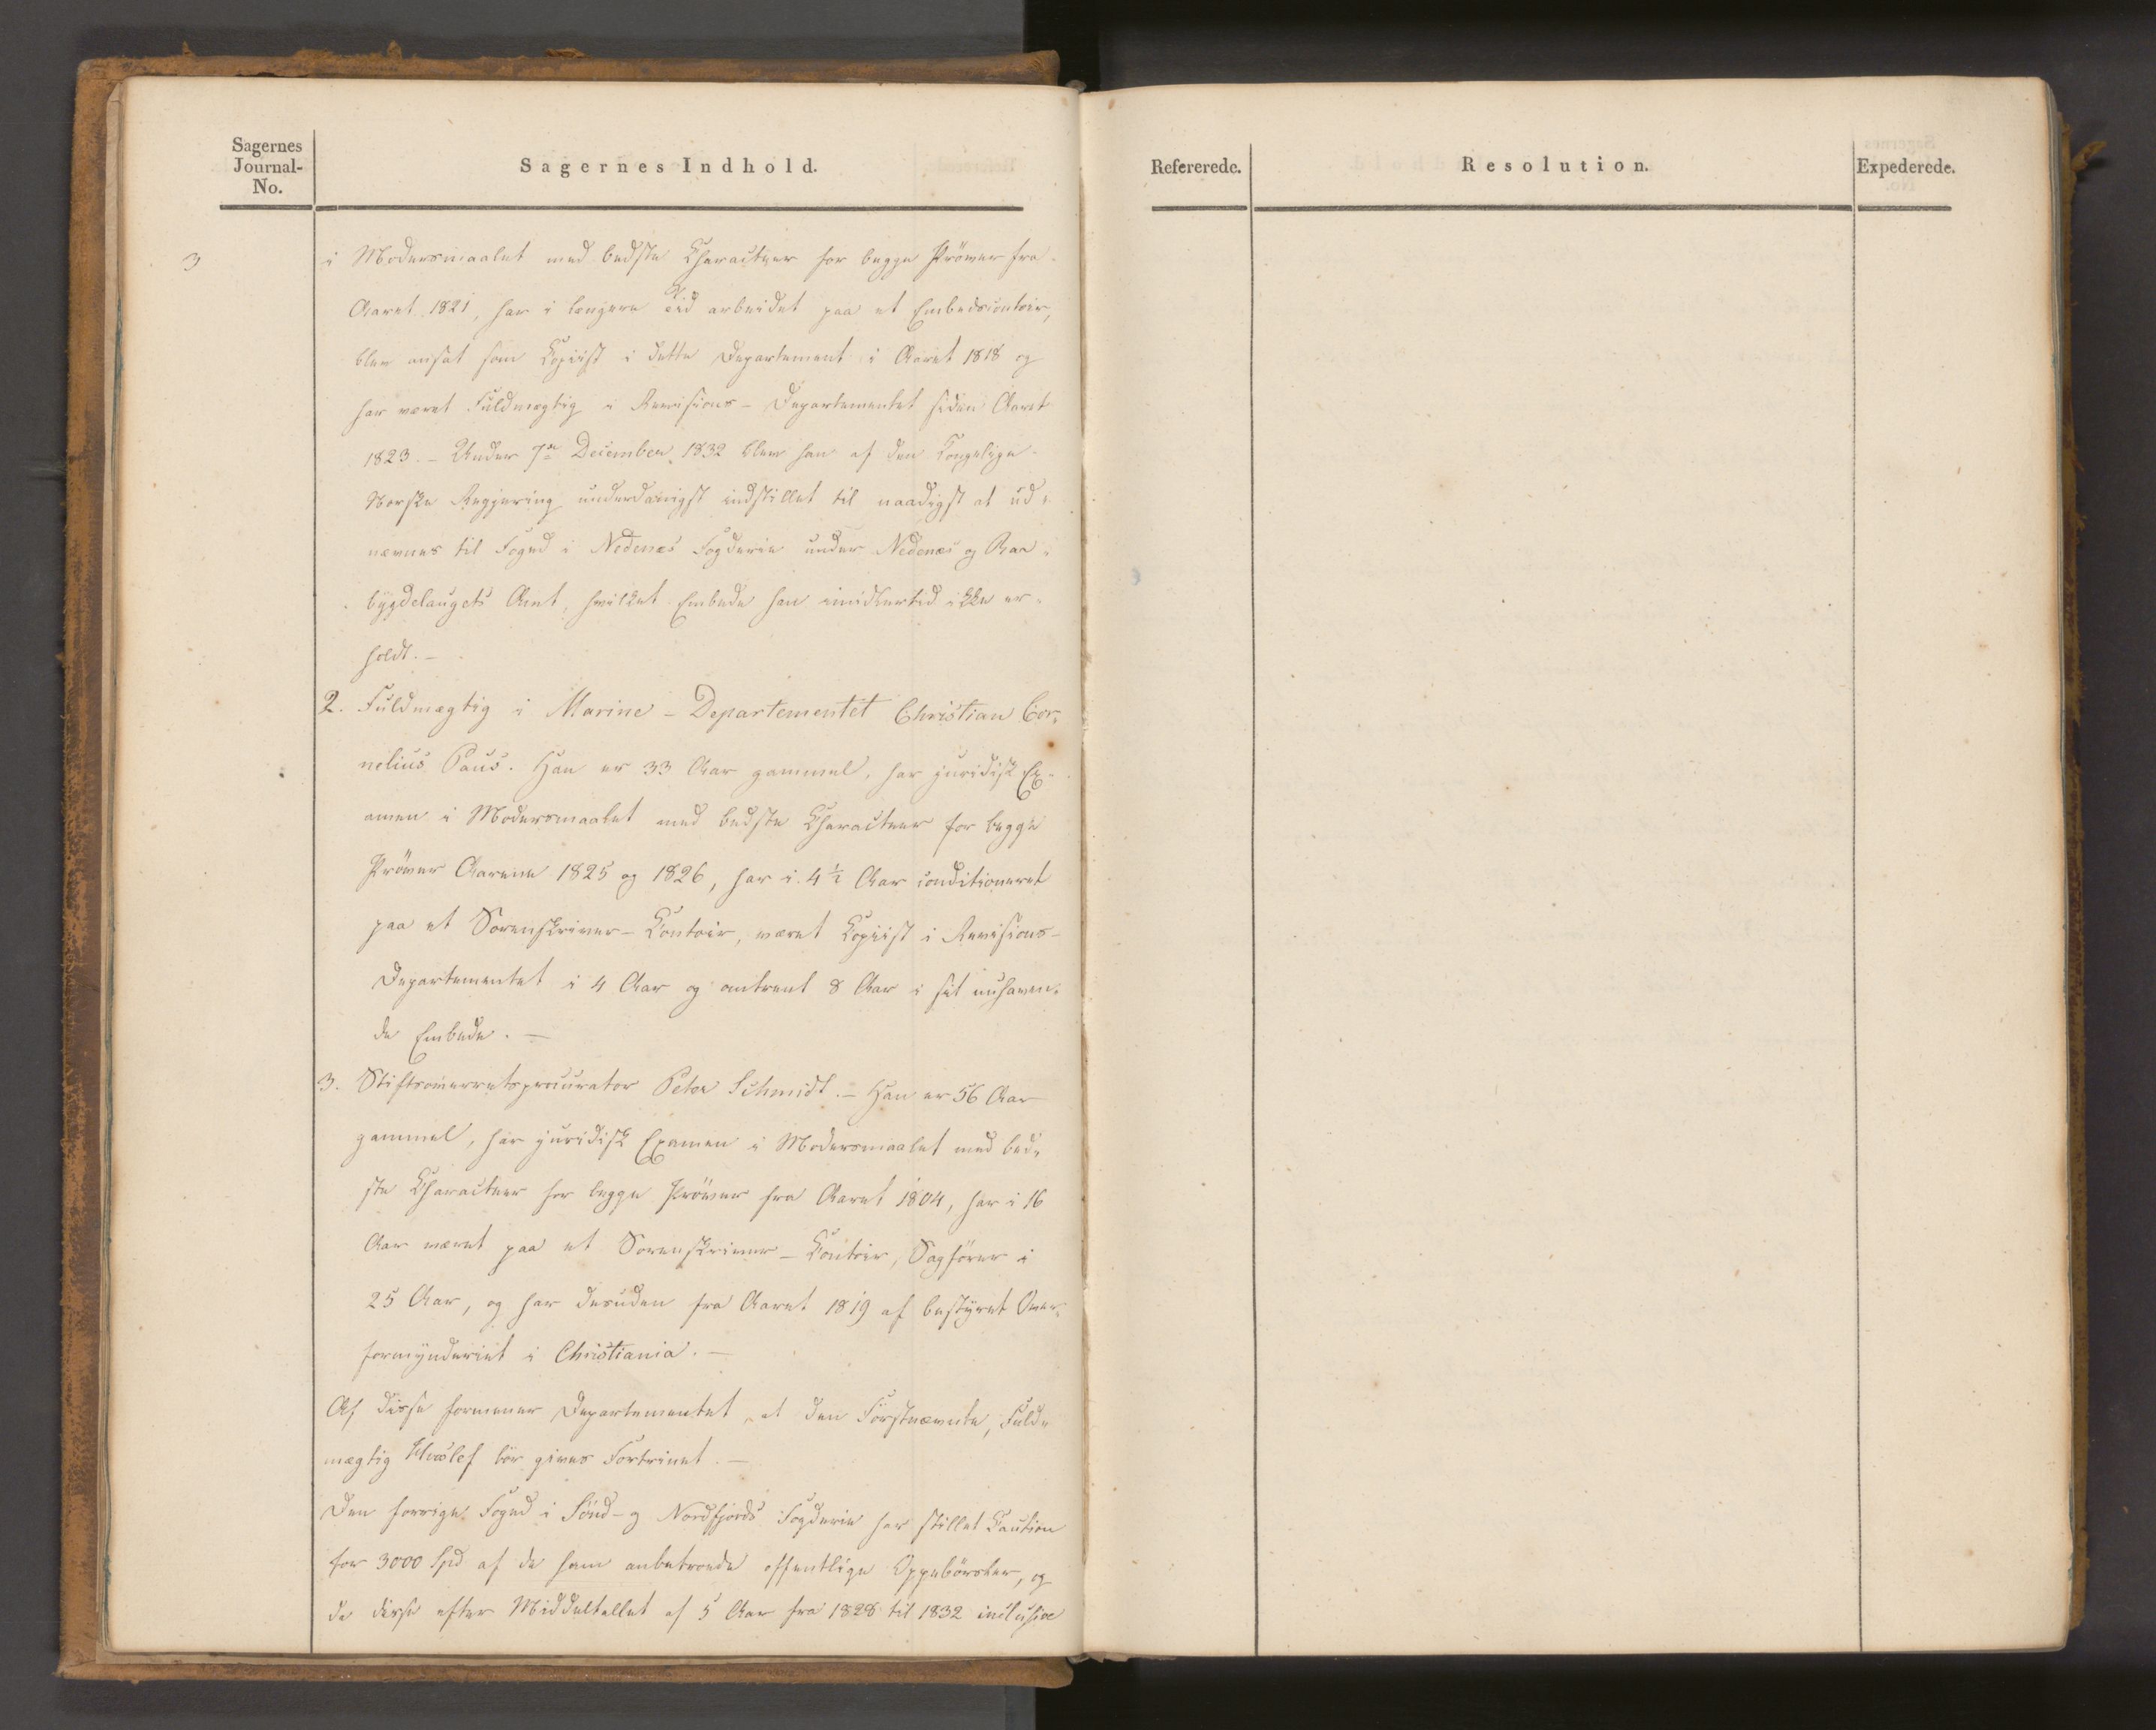 Sagernes
Journal-
No.
Sagernes Indhold.
Refererede.
Resolution.
Expederede.
3
i Modersmaalet med bedste Character for begge Prøver fra
Aaret 1821, har i længere Tid arbeidet paa et Embedscontoir,
blev ansat som Copiist i dette Departement i Aaret 1818 og
har været Fuldmægtig i Revisions-Departementet siden Aaret
1823. - Under 7de December 1832 blev han af den Kongelige
Norske Regjering underdanigst indstillet til naadigst at ud-
nævnes til Foged i Nedenæs Fogderie under Nedenæs og Raa-
bygdelaugets Amt, hvilket Embede han imidlertid ikke er-
holdt. -
2. Fuldmægtig i Marine-Departementet Christian Cor-
nelius Paus. Han er 33 Aar gammel, har juridisk Ex-
amen i Modersmaalet med bedste Character for begge
Prøver Aarene 1825 og 1826, har i 4½ Aar conditioneret
paa et Sorenskriver-Contoir, været Copiist i Revisions-
Departementet i 4 Aar og omtrent 8 Aar i sit nuhaven-
de Embede. -
3. Stiftsoverretsprocurator Peter Schmidt. - Han er 56 Aar
gammel, har juridisk Examen i Modersmaalet med bed-
ste Character for begge Prøver fra Aaret 1804, har i 16
Aar været paa et Sorenskriver-Contoir, Sagfører i
25 Aar, og har desuden fra Aaret 1819 af bestyret Over-
formynderiet i Christiania. -
Af disse formener Departementet, at den Førstnævnte, Fuld-
mægtig Hvoslef bør gives Fortrinet. -
Den forrige Foged i Sønd- og Nordfjords Fogderie har stillet Caution
for 3000 Spd af de ham anbetroede offentlige Oppebørsler, og
da disse efter Middeltallet af 5 Aar fra 1828 til 1832 inclusive